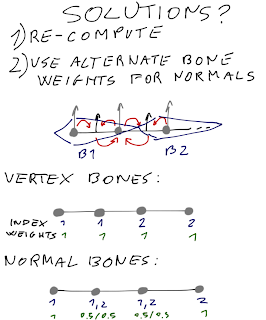 SOLUTIONS?
1) RE-COMPUTE
2) USE ALTERNATE BONE
WEIGHTS FOR NORMALS
B1 B2
VERTEX BONES:
INDEX 1 1 2 2
WEIGHTS 1 1 1 1
NORMAL BONES:
1 1,2 1,2 2
1 0.5/0.5 0.5/0.5 1